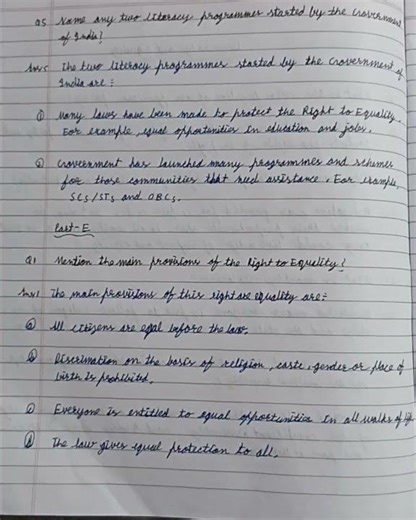 Q5 Name any two literacy programmes started by the Government
of India?
Ans5 The two literacy programmes started by the Government of
India are :
① Many laws have been made to protect the Right to Equality.
For example, equal opportunities in education and jobs.
② Government has launched many programmes and schemes
for those communities that need assistance. For example,
SCs/STs and OBCs.
Part-E
Q1 Mention the main provisions of the Right to Equality?
Ans1 The main provisions of this right are equality are:
ⓐ All citizens are eqal before the law.
ⓑ Discrimation on the basis of religion, caste, gender or place of
birth is prohibited.
ⓒ Everyone is entitled to equal opportunities in all walks of life.
ⓓ The law gives equal protection to all.